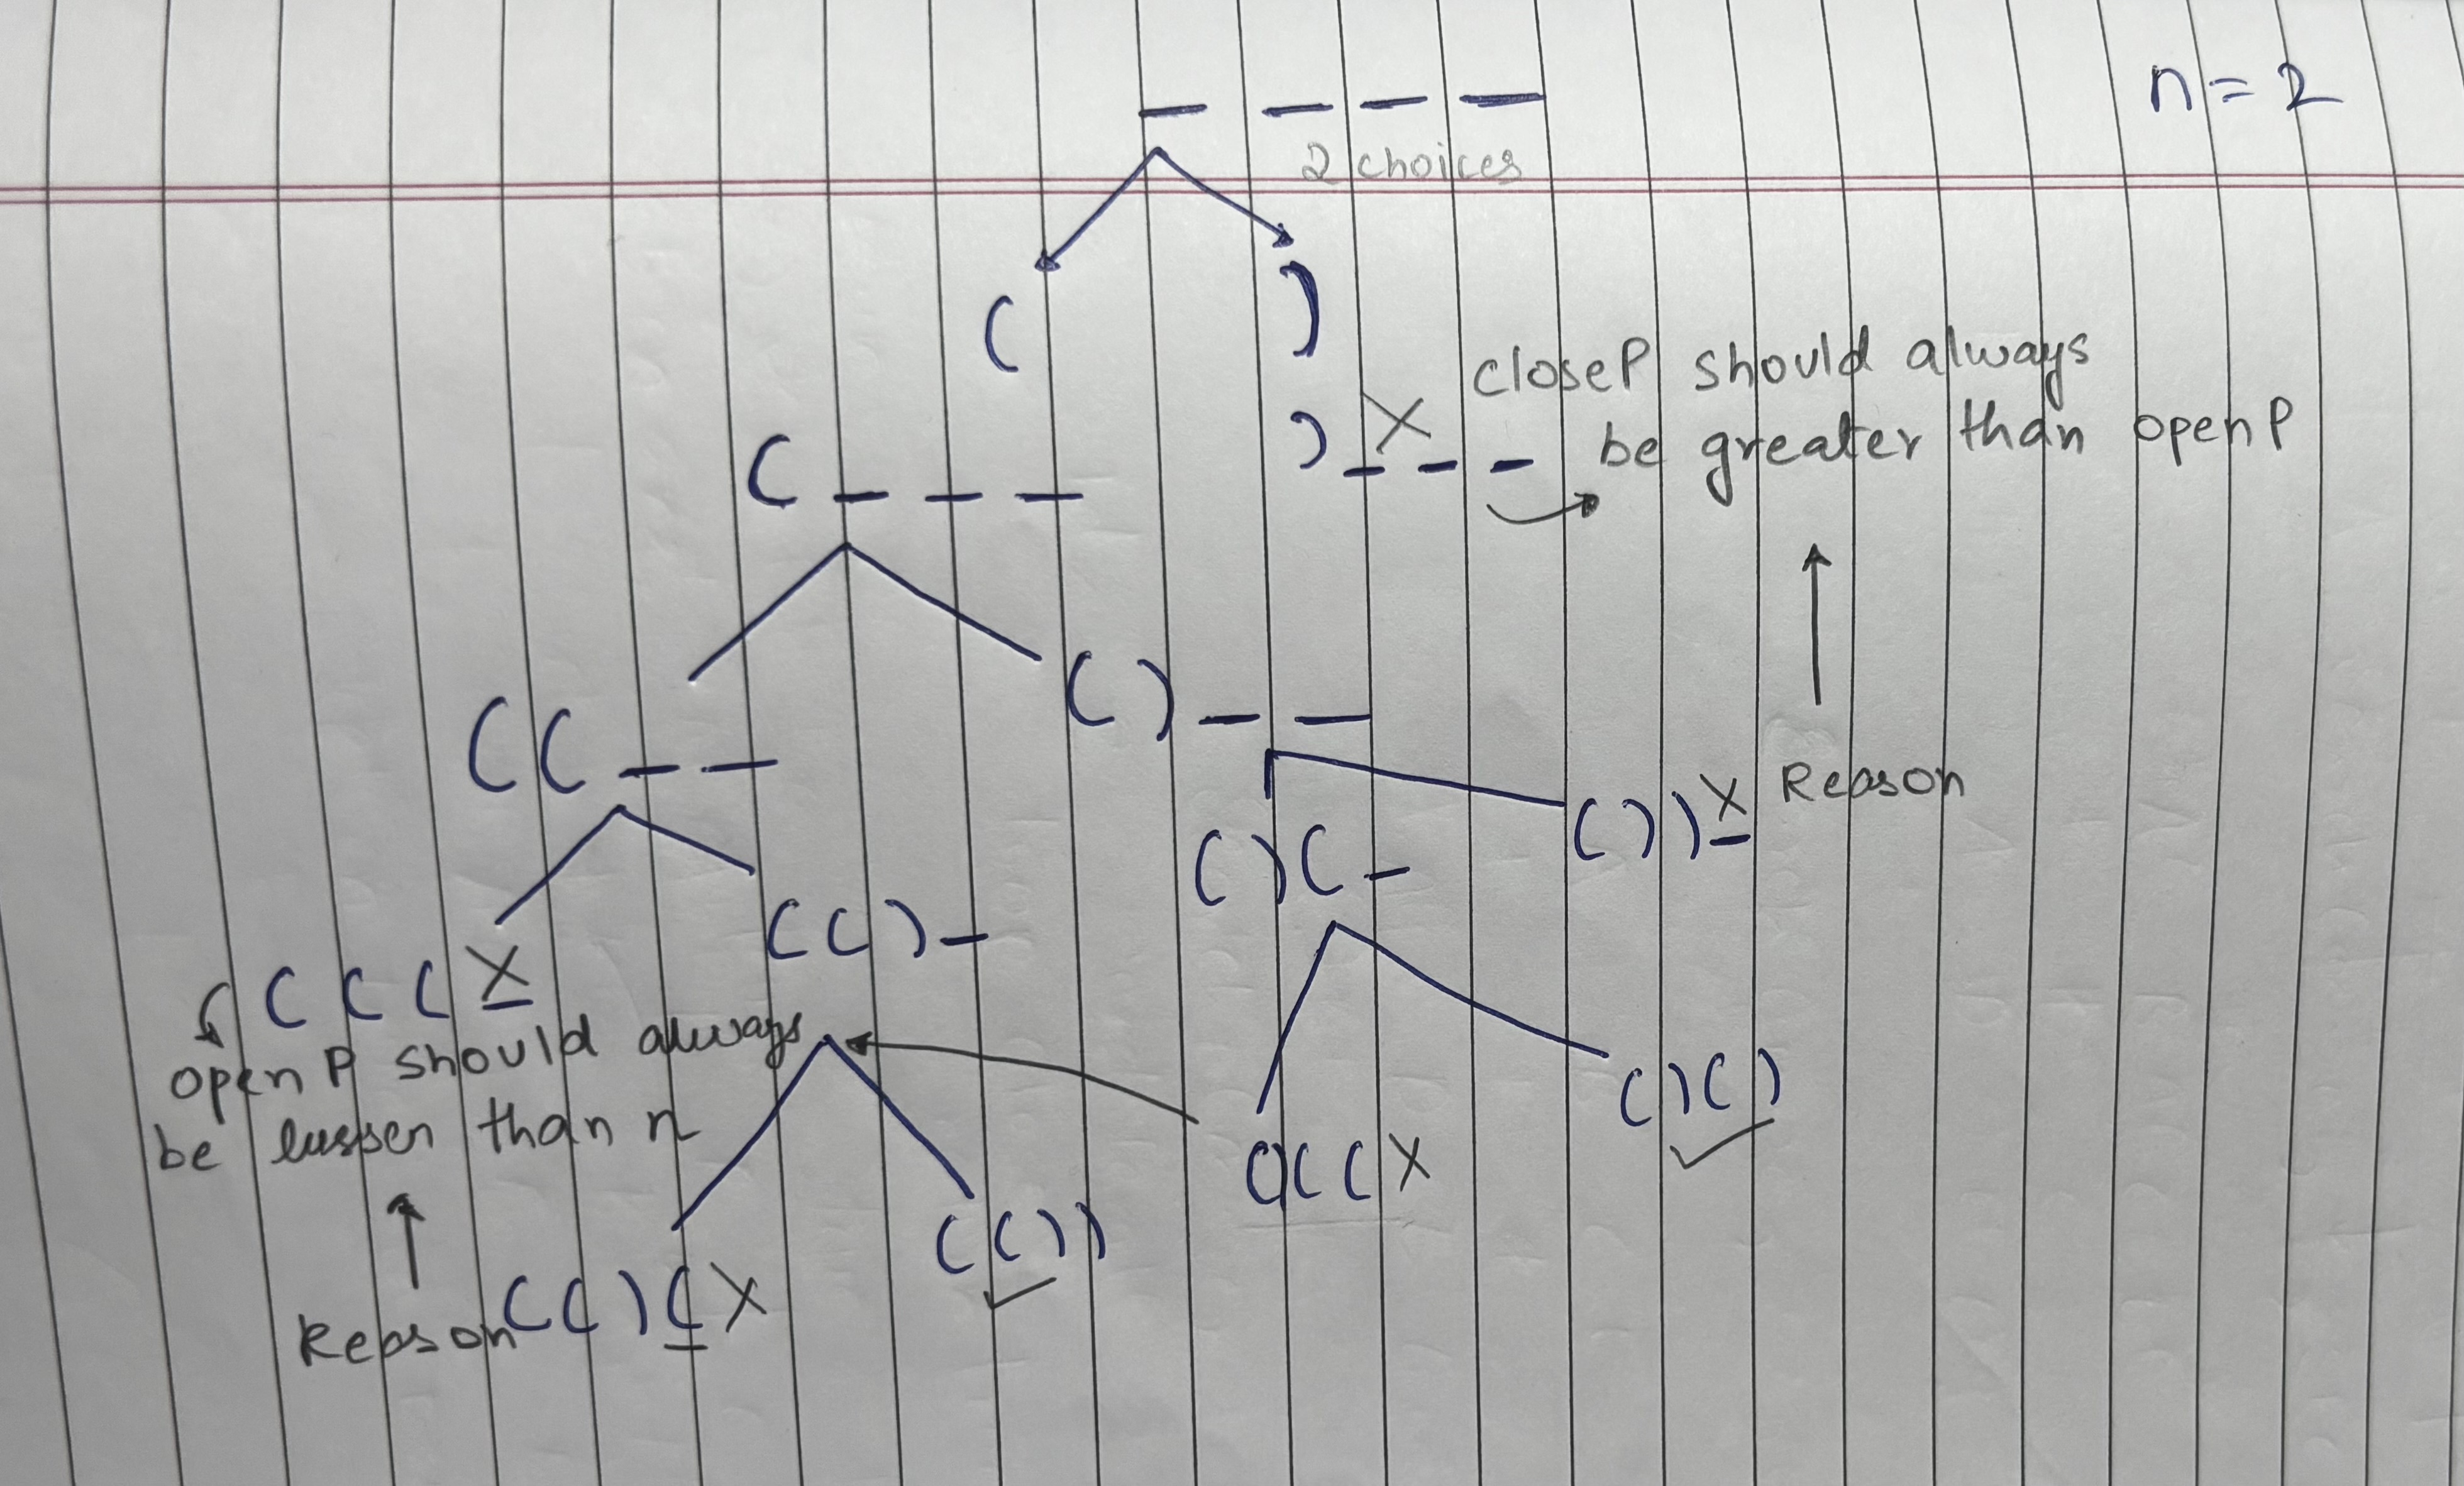 n = 2
_ _ _ _
2 choices
( )
closeP should always
) _ _ _ X be greater than openP
( _ _ _
( ) _ _
( ( _ _
Reason
( ) ) _ X
( ) ( _
( ( ) _
( ( ( _ X
openP should always
be lesser than n
( ) ( )
( ) ( ( X
( ( ) )
( ( ) ( X
Reason